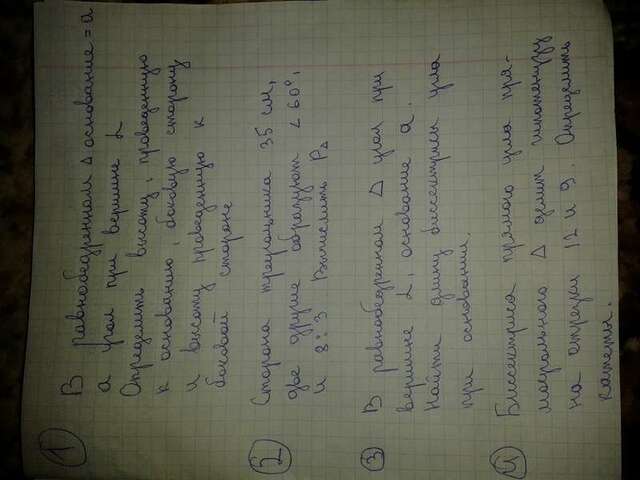 1 В равнобедренном Δ основание = a
а угол при вершине α
Определить высоту, проведенную
к основанию, боковую сторону
и высоту проведенную к
боковой стороне
2 Сторона треугольника 35 см,
две другие образуют ∠60°,
и 8:3 Вычислить PΔ
3 В равнобедренном Δ угол при
вершине α, основание a.
Найти длину биссектрисы угла
при основании.
4 Биссектриса прямого угла пря-
моугольного Δ делит гипотенузу
на отрезки 12 и 9. Определить
катеты.